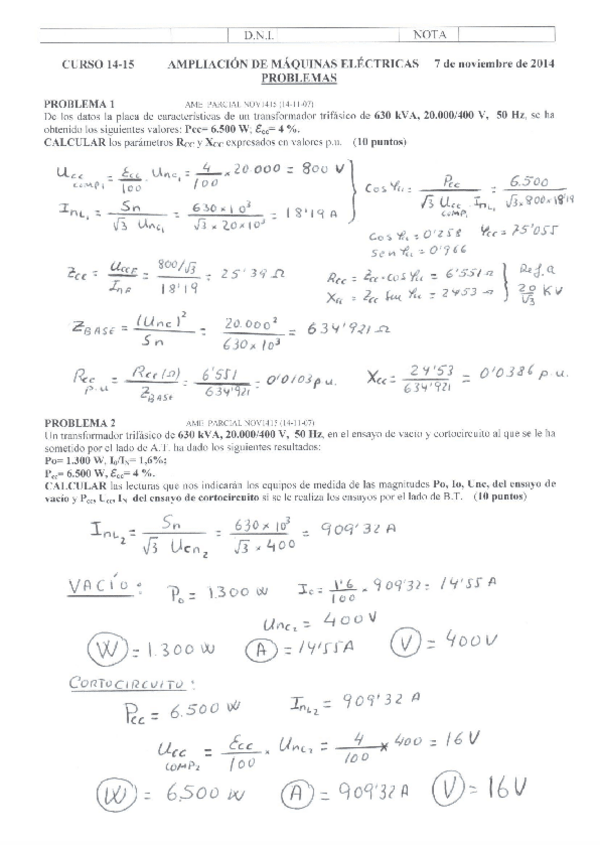 D.N.I. NOTA
CURSO 14-15 AMPLIACIÓN DE MÁQUINAS ELÉCTRICAS 7 de noviembre de 2014
PROBLEMAS
PROBLEMA 1 AME. PARCIAL NOV1415 (14-11-07)
De los datos la placa de características de un transformador trifásico de 630 kVA, 20.000/400 V, 50 Hz, se ha
obtenido los siguientes valores: Pcc= 6.500 W; Ɛcc= 4 %.
CALCULAR los parámetros Rcc y Xcc expresados en valores p.u. (10 puntos)
Ucc comp1 = Ɛcc/100 · Unc1 = 4/100 × 20.000 = 800 V
InL1 = Sn/(√3 Unc1) = 630×10³/(√3×20×10³) = 18'19 A
Cos φcc = Pcc/(√3 Ucc comp. InL1) = 6.500/(√3×800×18'19)
Cos φcc = 0'258 φcc = 75'055
sen φcc = 0'966
Zcc = UccF/InF = (800/√3)/18'19 = 25'39 Ω
Rcc = Zcc·cos φcc = 6'551 Ω
Xcc = Zcc sen φcc = 2453 Ω
Ref. a 20/√3 KV
Z BASE = (Unc)²/Sn = 20.000²/630×10³ = 634'921 Ω
Rcc p.u = Rcc(Ω)/Z BASE = 6'551/634'921 = 0'0103 p.u. Xcc = 24'53/634'921 = 0'0386 p.u.
PROBLEMA 2 AME. PARCIAL NOV1415 (14-11-07)
Un transformador trifásico de 630 kVA, 20.000/400 V, 50 Hz, en el ensayo de vacío y cortocircuito al que se le ha
sometido por el lado de A.T. ha dado los siguientes resultados:
Po= 1.300 W, I₀/Iₙ= 1,6%;
Pcc= 6.500 W, Ɛcc= 4 %.
CALCULAR las lecturas que nos indicarán los equipos de medida de las magnitudes Po, Io, Unc, del ensayo de
vacío y Pcc, Ucc, IN del ensayo de cortocircuito si se le realiza los ensayos por el lado de B.T. (10 puntos)
InL2 = Sn/(√3 Ucn2) = 630×10³/(√3×400) = 909'32 A
VACÍO: Po = 1.300 W Io = 1'6/100 · 909'32 = 14'55 A
Unc2 = 400V
W = 1.300 W A = 14'55A V = 400V
CORTOCIRCUITO:
Pcc = 6.500 W InL2 = 909'32 A
Ucc comp2 = Ɛcc/100 × Unc2 = 4/100 × 400 = 16V
W = 6.500 W A = 909'32 A V = 16V